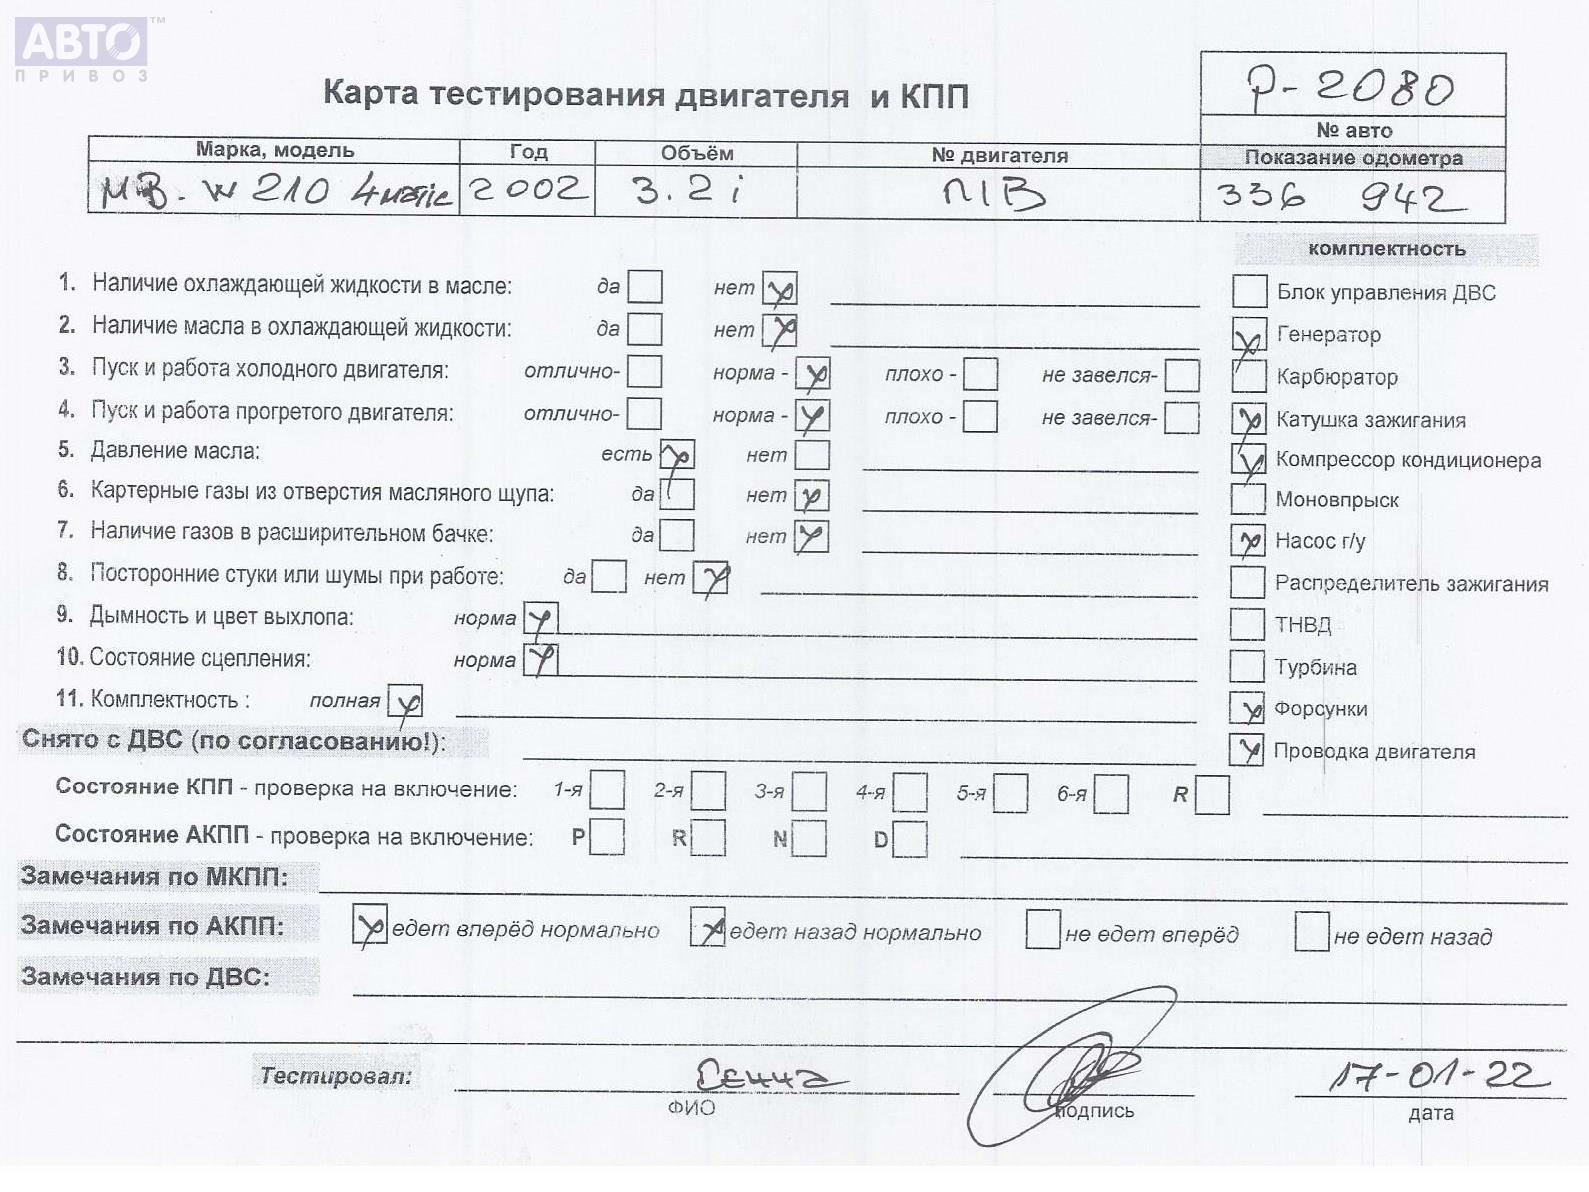 АВТО™
ПРИВОЗ
Карта тестирования двигателя и КПП
P-2080
№ авто
Марка, модель Год Объём № двигателя Показание одометра
MB. W 210 4matic 2002 3.2 i 336 942
комплектность
1. Наличие охлаждающей жидкости в масле: да нет
Блок управления ДВС
2. Наличие масла в охлаждающей жидкости: да нет
Генератор
3. Пуск и работа холодного двигателя: отлично- норма - плохо - не завелся-
Карбюратор
4. Пуск и работа прогретого двигателя: отлично- норма - плохо - не завелся-
Катушка зажигания
5. Давление масла: есть нет
Компрессор кондиционера
6. Картерные газы из отверстия масляного щупа: да нет
Моновпрыск
7. Наличие газов в расширительном бачке: да нет
Насос г/у
8. Посторонние стуки или шумы при работе: да нет
Распределитель зажигания
9. Дымность и цвет выхлопа: норма
ТНВД
10. Состояние сцепления: норма
Турбина
11. Комплектность : полная
Форсунки
Снято с ДВС (по согласованию!):
Проводка двигателя
Состояние КПП - проверка на включение: 1-я 2-я 3-я 4-я 5-я 6-я R
Состояние АКПП - проверка на включение: P R N D
Замечания по МКПП:
Замечания по АКПП: едет вперёд нормально едет назад нормально не едет вперёд не едет назад
Замечания по ДВС:
Тестировал: 17-01-22
ФИО подпись дата